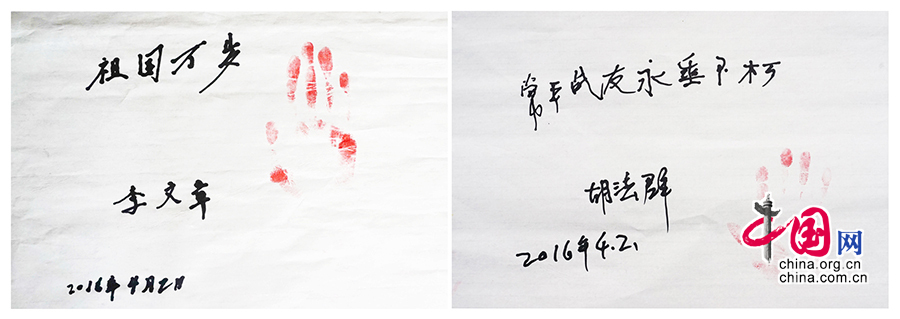 祖国万岁
李文章
2016年4月2日
战友永垂不朽
胡法群
2016年4.2.
中国网
china.org.cn
china.com.cn